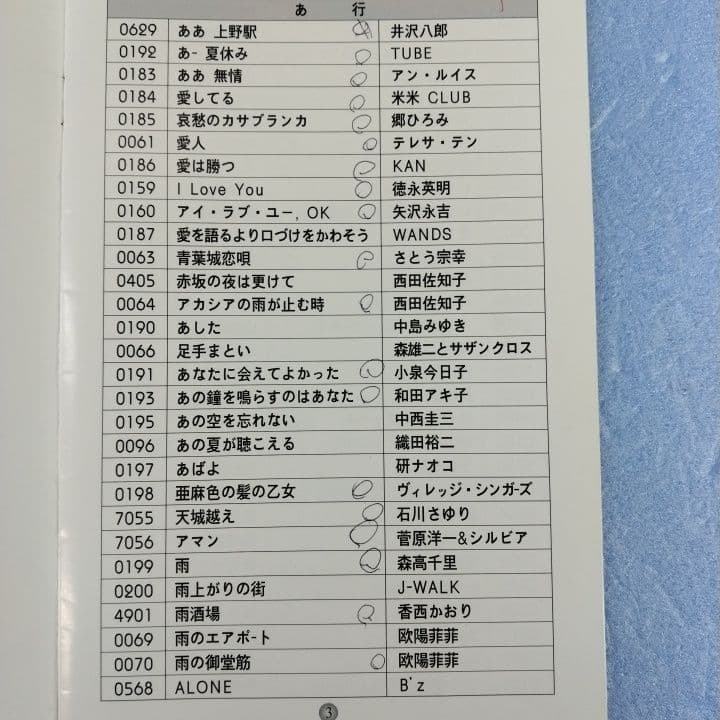 あ 行
0629 ああ 上野駅 井沢八郎
0192 あ- 夏休み TUBE
0183 ああ 無情 アン・ルイス
0184 愛してる 米米 CLUB
0185 哀愁のカサブランカ 郷ひろみ
0061 愛人 テレサ・テン
0186 愛は勝つ KAN
0159 I Love You 徳永英明
0160 アイ・ラブ・ユー, OK 矢沢永吉
0187 愛を語るより口づけをかわそう WANDS
0063 青葉城恋唄 さとう宗幸
0405 赤坂の夜は更けて 西田佐知子
0064 アカシアの雨が止む時 西田佐知子
0190 あした 中島みゆき
0066 足手まとい 森雄二とサザンクロス
0191 あなたに会えてよかった 小泉今日子
0193 あの鐘を鳴らすのはあなた 和田アキ子
0195 あの空を忘れない 中西圭三
0096 あの夏が聴こえる 織田裕二
0197 あばよ 研ナオコ
0198 亜麻色の髪の乙女 ヴィレッジ・シンガ-ズ
7055 天城越え 石川さゆり
7056 アマン 菅原洋一&シルビア
0199 雨 森高千里
0200 雨上がりの街 J-WALK
4901 雨酒場 香西かおり
0069 雨のエアポ-ト 欧陽菲菲
0070 雨の御堂筋 欧陽菲菲
0568 ALONE B'z
3